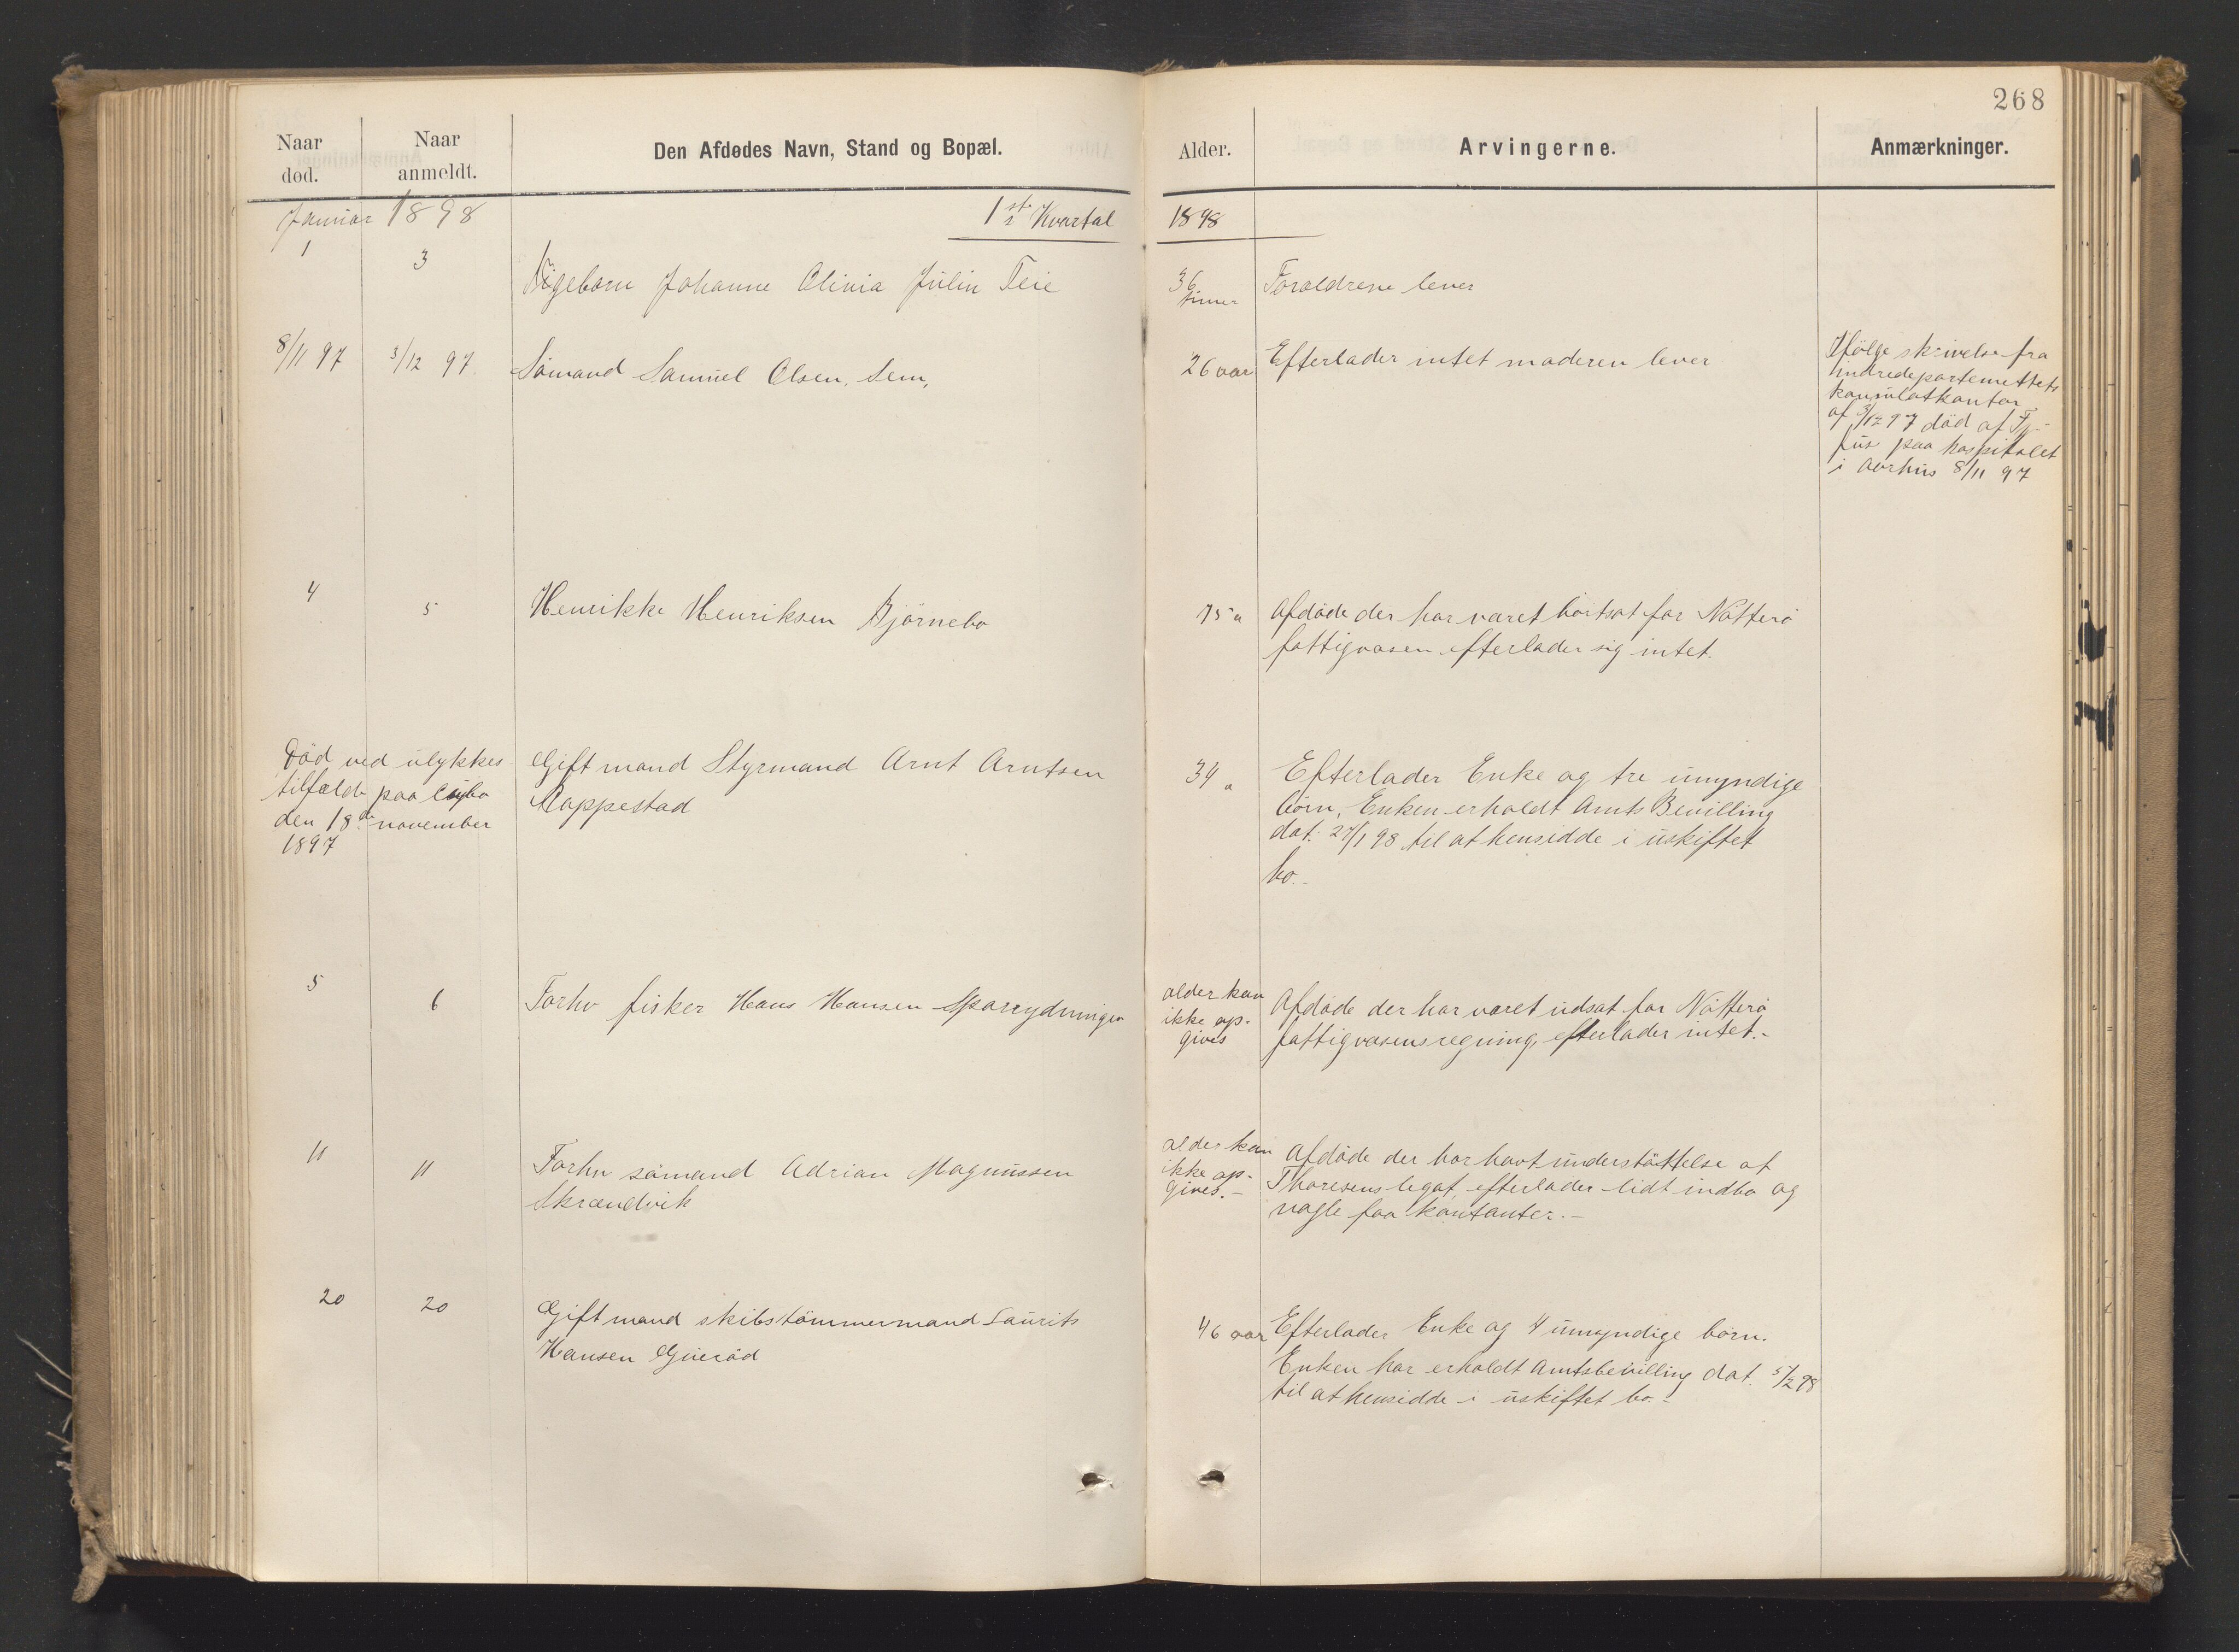 268
Naar
død.
Naar
anmeldt.
Den Afdødes Navn, Stand og Bopæl.
Alder.
Arvingerne.
Anmærkninger.
Januar 1898
1ste Kvartal
1898
1
3
Pigebarn Johanne Olivia Julin Teie
36
timer
Foraldrene lever
8/11 97
3/12 97.
Sömand Samuel Olsen. Sem,
26 aar
Efterlader intet moderen lever
Ifölge skrivelse fra
Indredepartemettets
konsulatkontor
af 3/12 97 död af Ty-
fus paa hospitalet
i Aarhus 8/11 97
4
5
Henrikke Henriksen Björnebo
75 a
Afdöde der har været bortsat for Nötterö
fattigvæsen efterlader sig intet.
Död ved ulykkes
tilfælde paa Cuba
den 18de november
1897
Gift mand Styrmand Arnt Arntsen
Rappestad
34 a
Efterlader Enke og tre umyndige
börn, Enken erholdt Amts Bevilling
dat. 27/1 98 til at hensidde i uskiftet
bo.
5
6
Forhv fisker Hans Hansen Sparrydningen
alder kan
ikke op-
gives
Afdöde der har været udsat for Nötterö
fattigvæsens regning, efterlader intet.-
11
11
Forhv sömand Adrian Magnussen
Skrændvik
alder kan
ikke op-
gives.-
Afdöde der har havt understöttelse af
Thoresens legat, efterlader lidt indbo og
nogle faa kontanter.-
20
20
Gift mand skibstömmermand Laurits
Hansen Gueröd
46 aar
Efterlader Enke og 4 umyndige börn.
Enken har erholdt Amtsbevilling dat. 5/2 98
til at hensidde i uskiftet bo.-